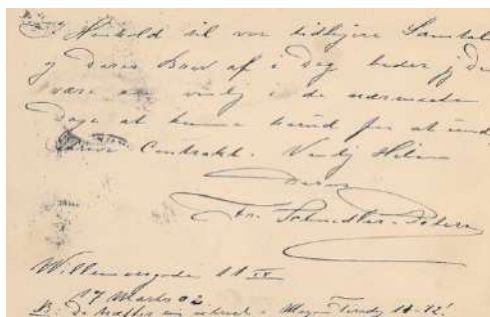 Henhold til vor tidligere Samtale
og Deres Brev af i Dag beder jeg Dem
være saa venlig i de nærmeste
Dage at komme herind for at und
skrive Contrakt. Venlig Hilsen
Deres
Fr. Schnedler-Petersen
Willemoesgade 11 IV
17 Marts 02
De træffer mig i Morgen Tirsdag 11-12!